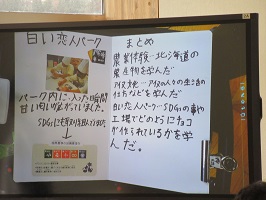 白い恋人パーク
パーク内に入った瞬間
甘い匂いがしていました
SDGsにも
まとめ
農業体験…北海道の
農産物を学んだ
アイヌ…アイヌの人の生活の
仕方などを学んだ
白い恋人パーク…SDGsの事や
工場でどのようにチョコ
が作られているかを学
んだ。